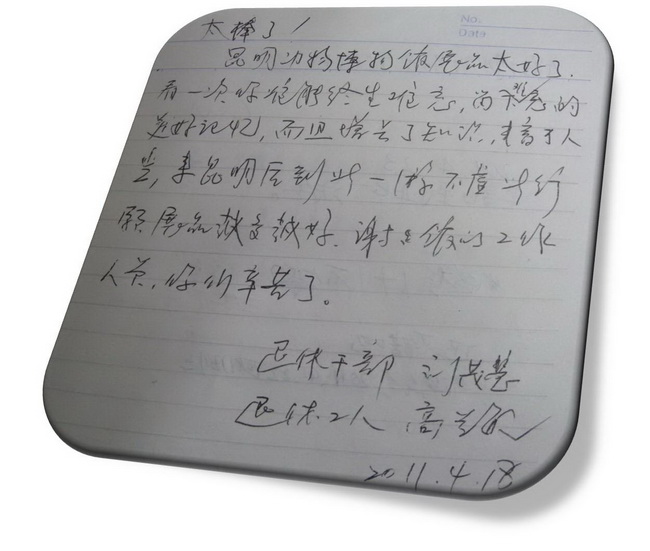 No.
Date
太棒了!
昆明动物博物馆展品太好了.
看一次你就能终生难忘,尚
美好记忆,而且增长了知识,丰富了人
生,来昆明后到此一游不虚此行
愿展品越多越好.谢谢馆的工作
人员,你们辛苦了。
退休干部 刘
退休工人 高兰
2011.4.18